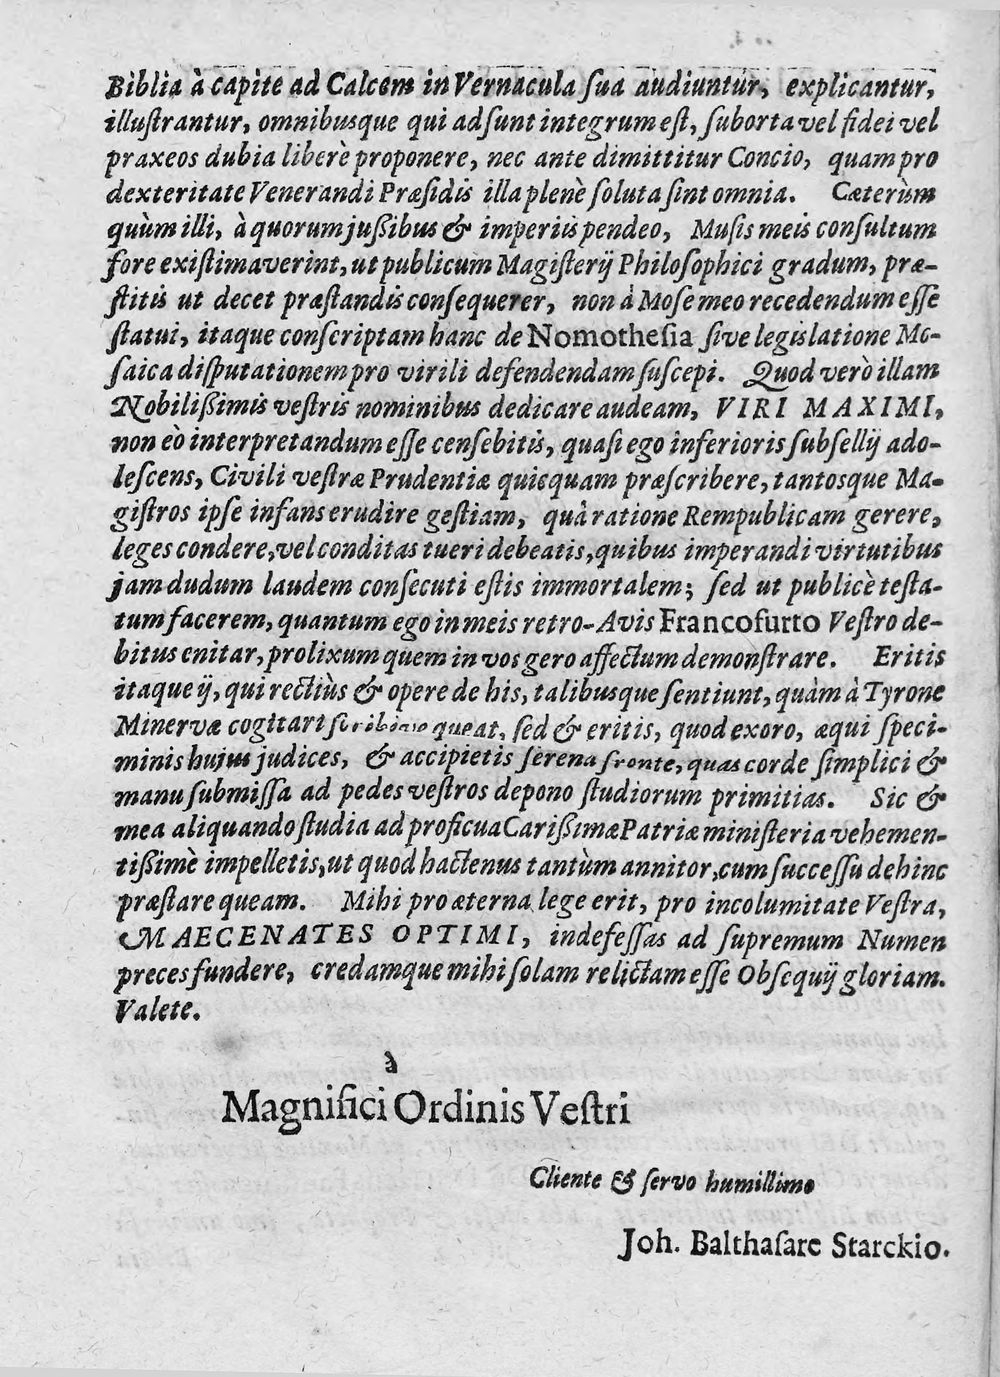 Biblia à capite ad Calcem in Vernacula ſua audiuntur, explicantur,
illuſtrantur, omnibusque qui adſunt integrum eſt, ſuborta vel fidei vel
praxeos dubia liberè proponere, nec ante dimittitur Concio, quam pro
dexteritate Venerandi Præſidis illa plenè ſoluta ſint omnia. Cæterùm
quùm illi, à quorum juſſibus & imperiis pendeo, Muſis meis conſultum
fore exiſtimaverint, ut publicum Magiſterij Philoſophici gradum, præ-
ſtitis ut decet præſtandis conſequerer, non à Moſe meo recedendum eſſe
ſtatui, itaque conſcriptam hanc de Nomotheſia ſive legislatione Mo-
ſaica diſputationem pro virili defendendam ſuſcepi. Quod verò illam
Nobiliſſimis veſtris nominibus dedicare audeam, VIRI MAXIMI,
non eò interpretandum eſſe cenſebitis, quaſi ego inferioris ſubſellij ado-
leſcens, Civili veſtræ Prudentiæ quicquam præſcribere, tantosque Ma-
giſtros ipſe infans erudire geſtiam, quà ratione Rempublicam gerere,
leges condere, vel conditas tueri debeatis, quibus imperandi virtutibus
jam dudum laudem conſecuti eſtis immortalem; ſed ut publicè teſta-
tum facerem, quantum ego in meis retro-Avis Francofurto Veſtro de-
bitus enitar, prolixum quem in vos gero affectum demonſtrare. Eritis
itaque ij, qui rectiùs & opere de his, talibusque ſentiunt, quàm à Tyrone
Minervæ cogitari ſcribique queat, ſed & eritis, quod exoro, æqui ſpeci-
minis hujus judices, & accipietis ſerena fronte, quas corde ſimplici &
manu ſubmiſſa ad pedes veſtros depono ſtudiorum primitias. Sic &
mea aliquando ſtudia ad proficua Cariſſimæ Patriæ miniſteria vehemen-
tiſſimè impelletis, ut quod hactenus tantùm annitor, cum ſucceſſu dehinc
præſtare queam. Mihi pro æterna lege erit, pro incolumitate Veſtra,
MAECENATES OPTIMI, indefeſſas ad ſupremum Numen
preces fundere, credamque mihi ſolam relictam eſſe Obſequij gloriam.
Valete.
à
Magnifici Ordinis Veſtri
Cliente & ſervo humillimo
Joh. Balthaſare Starckio.